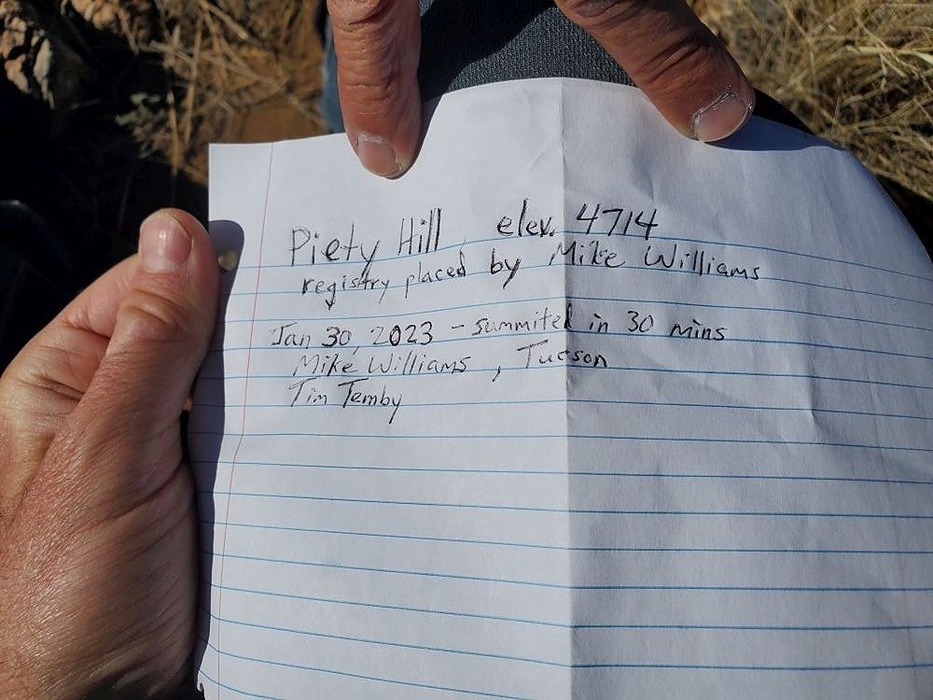 Piety Hill, elev. 4714
registry placed by Mike Williams
Jan 30, 2023 - summited in 30 mins
Mike Williams, Tucson
Tim Temby